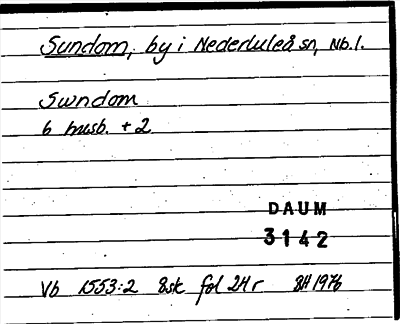 Sundom, by i Nederluleå sn, Nb.l.
Swndom
6 husb. + 2
DAUM
3142
Vb 1553:2 8sk fol 24r 8H 1976